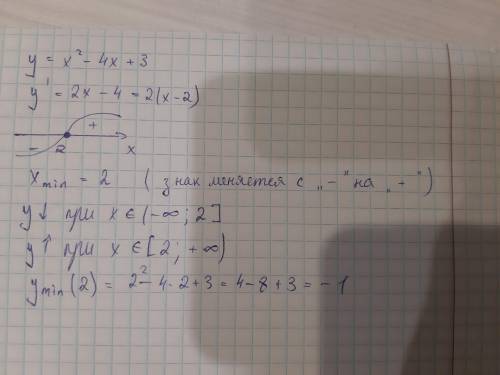 y = x² - 4x + 3
y' = 2x - 4 = 2(x-2)
+
- 2 x
x min = 2 ( знак меняется с „-" на „+")
y↓ при x ∈ (-∞; 2]
y↑ при x ∈ [2; +∞)
y min (2) = 2² - 4·2 + 3 = 4 - 8 + 3 = -1